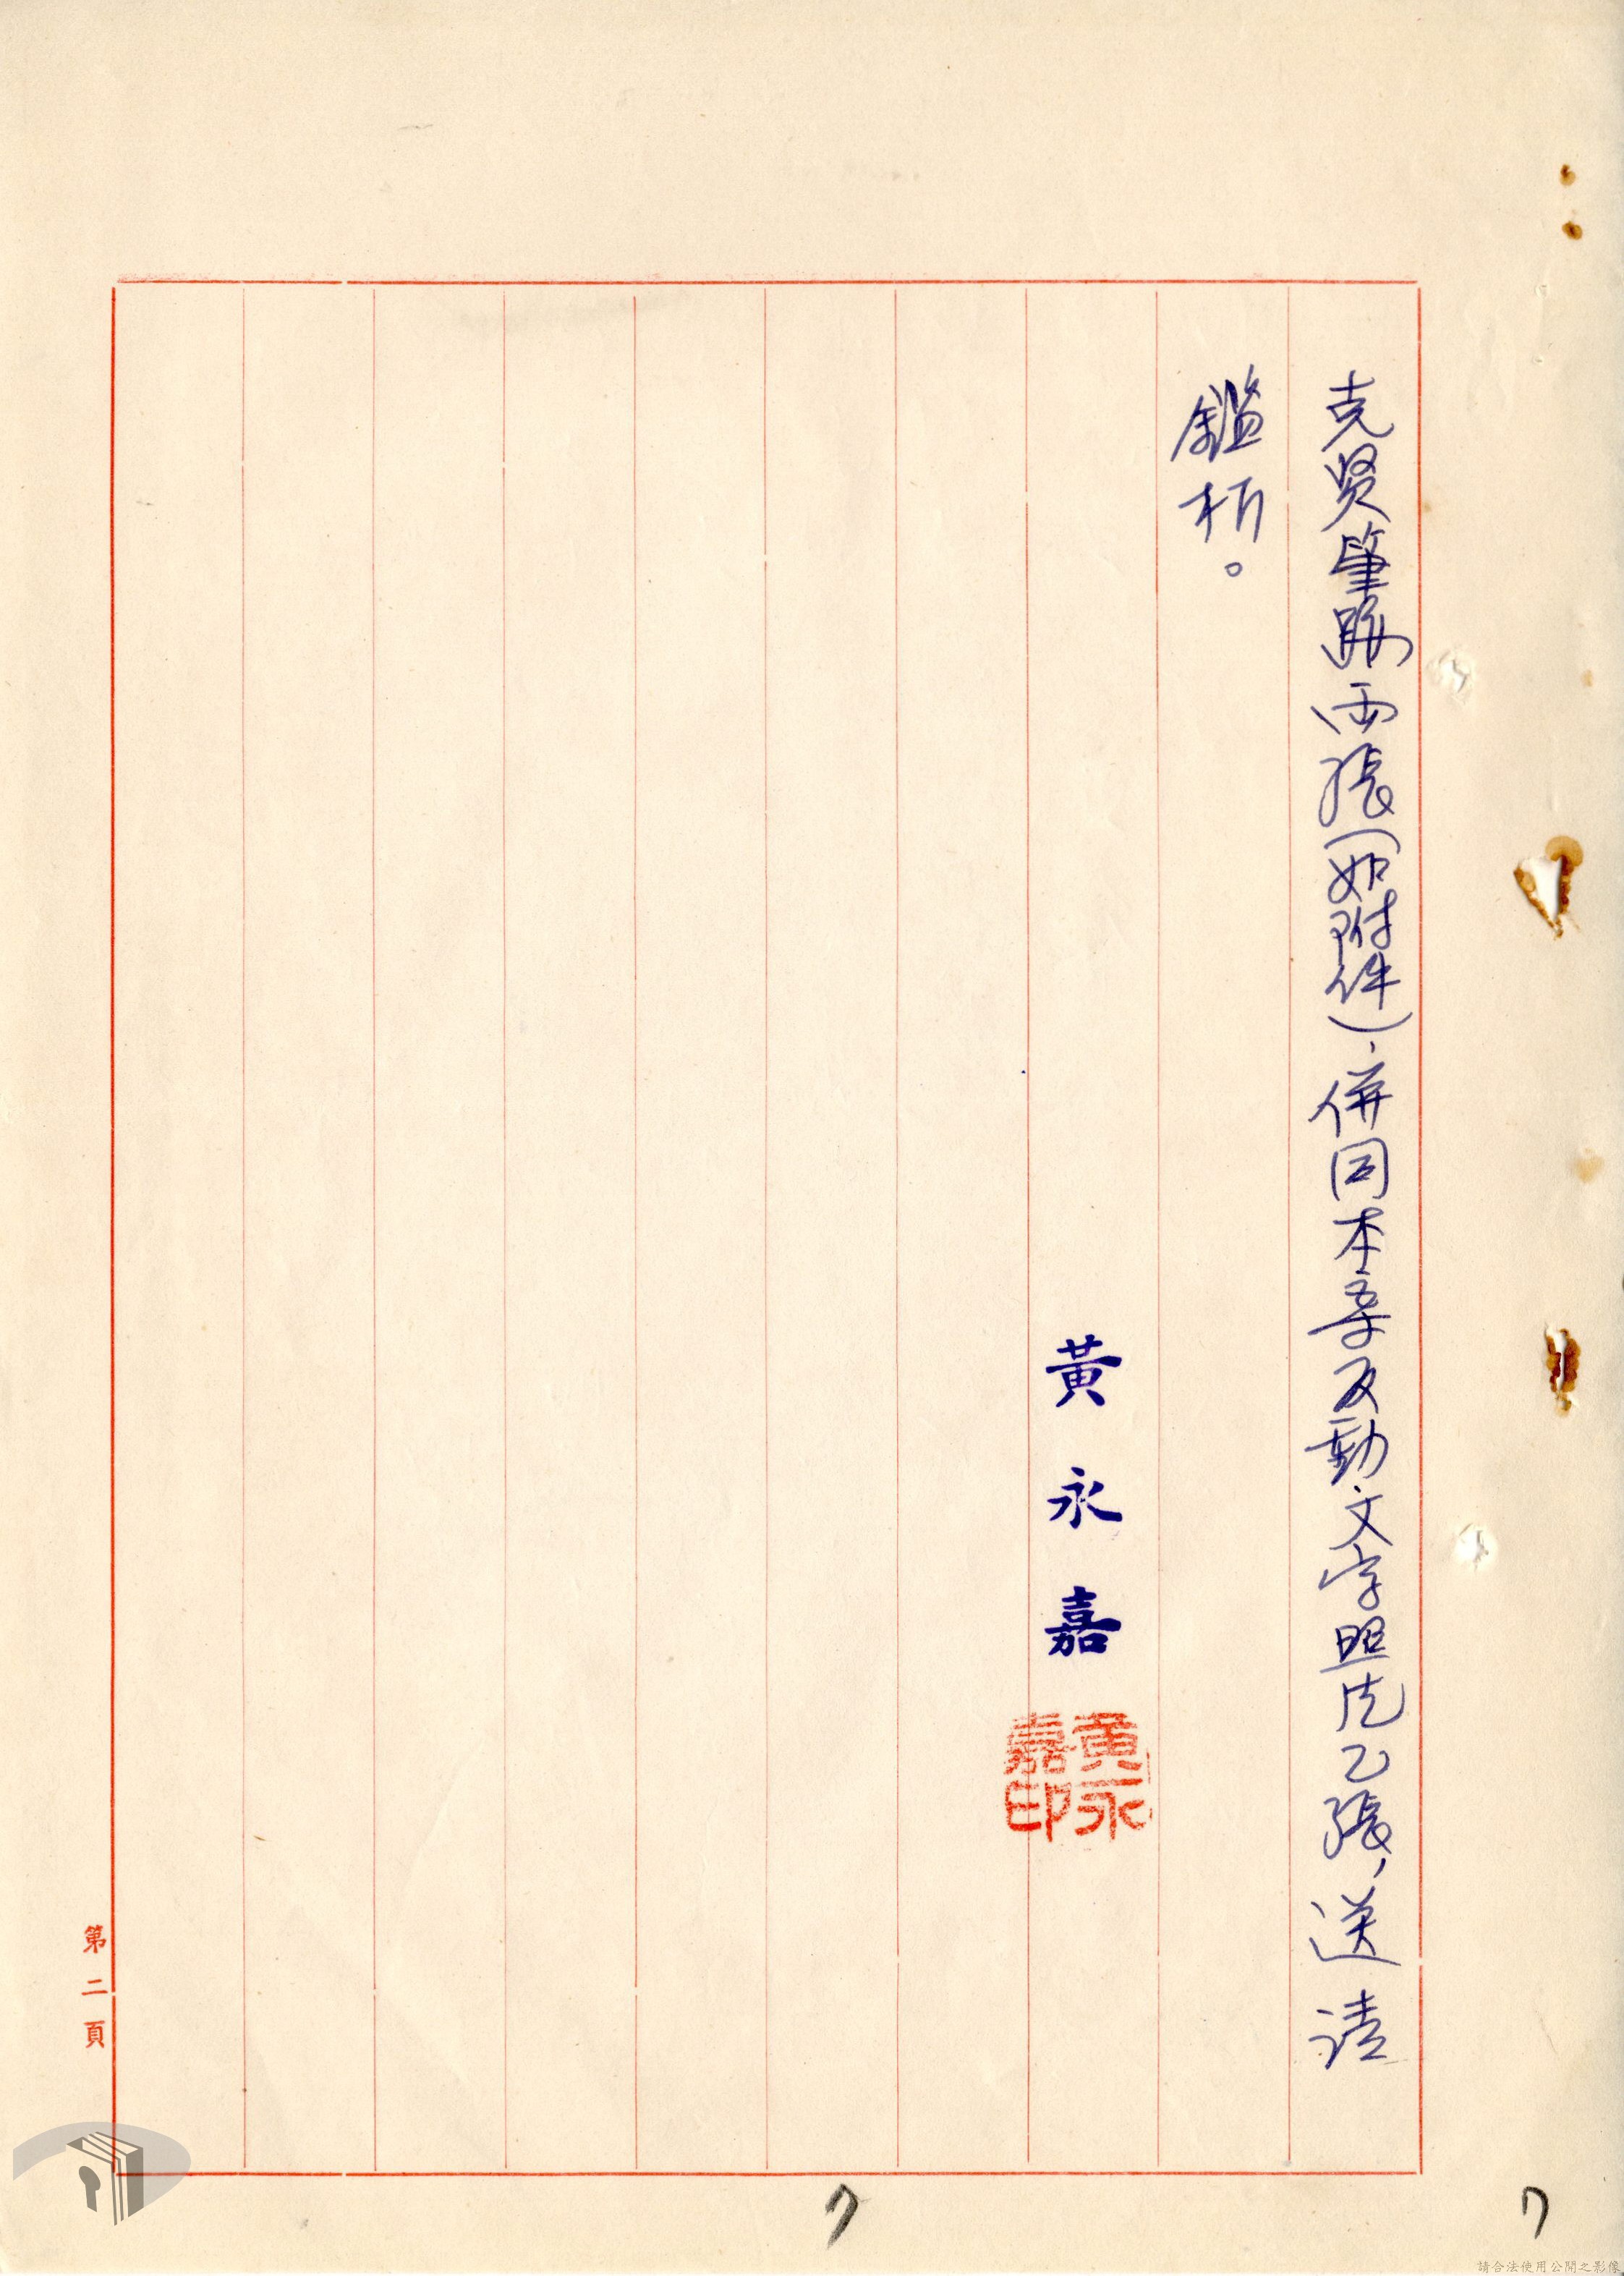 克賢筆跡兩張(如附件),併同本案反動文字照片乙張,送請
鑑析。
黃永嘉
黃永嘉印
第二頁
7
7
請合法使用公開之影像